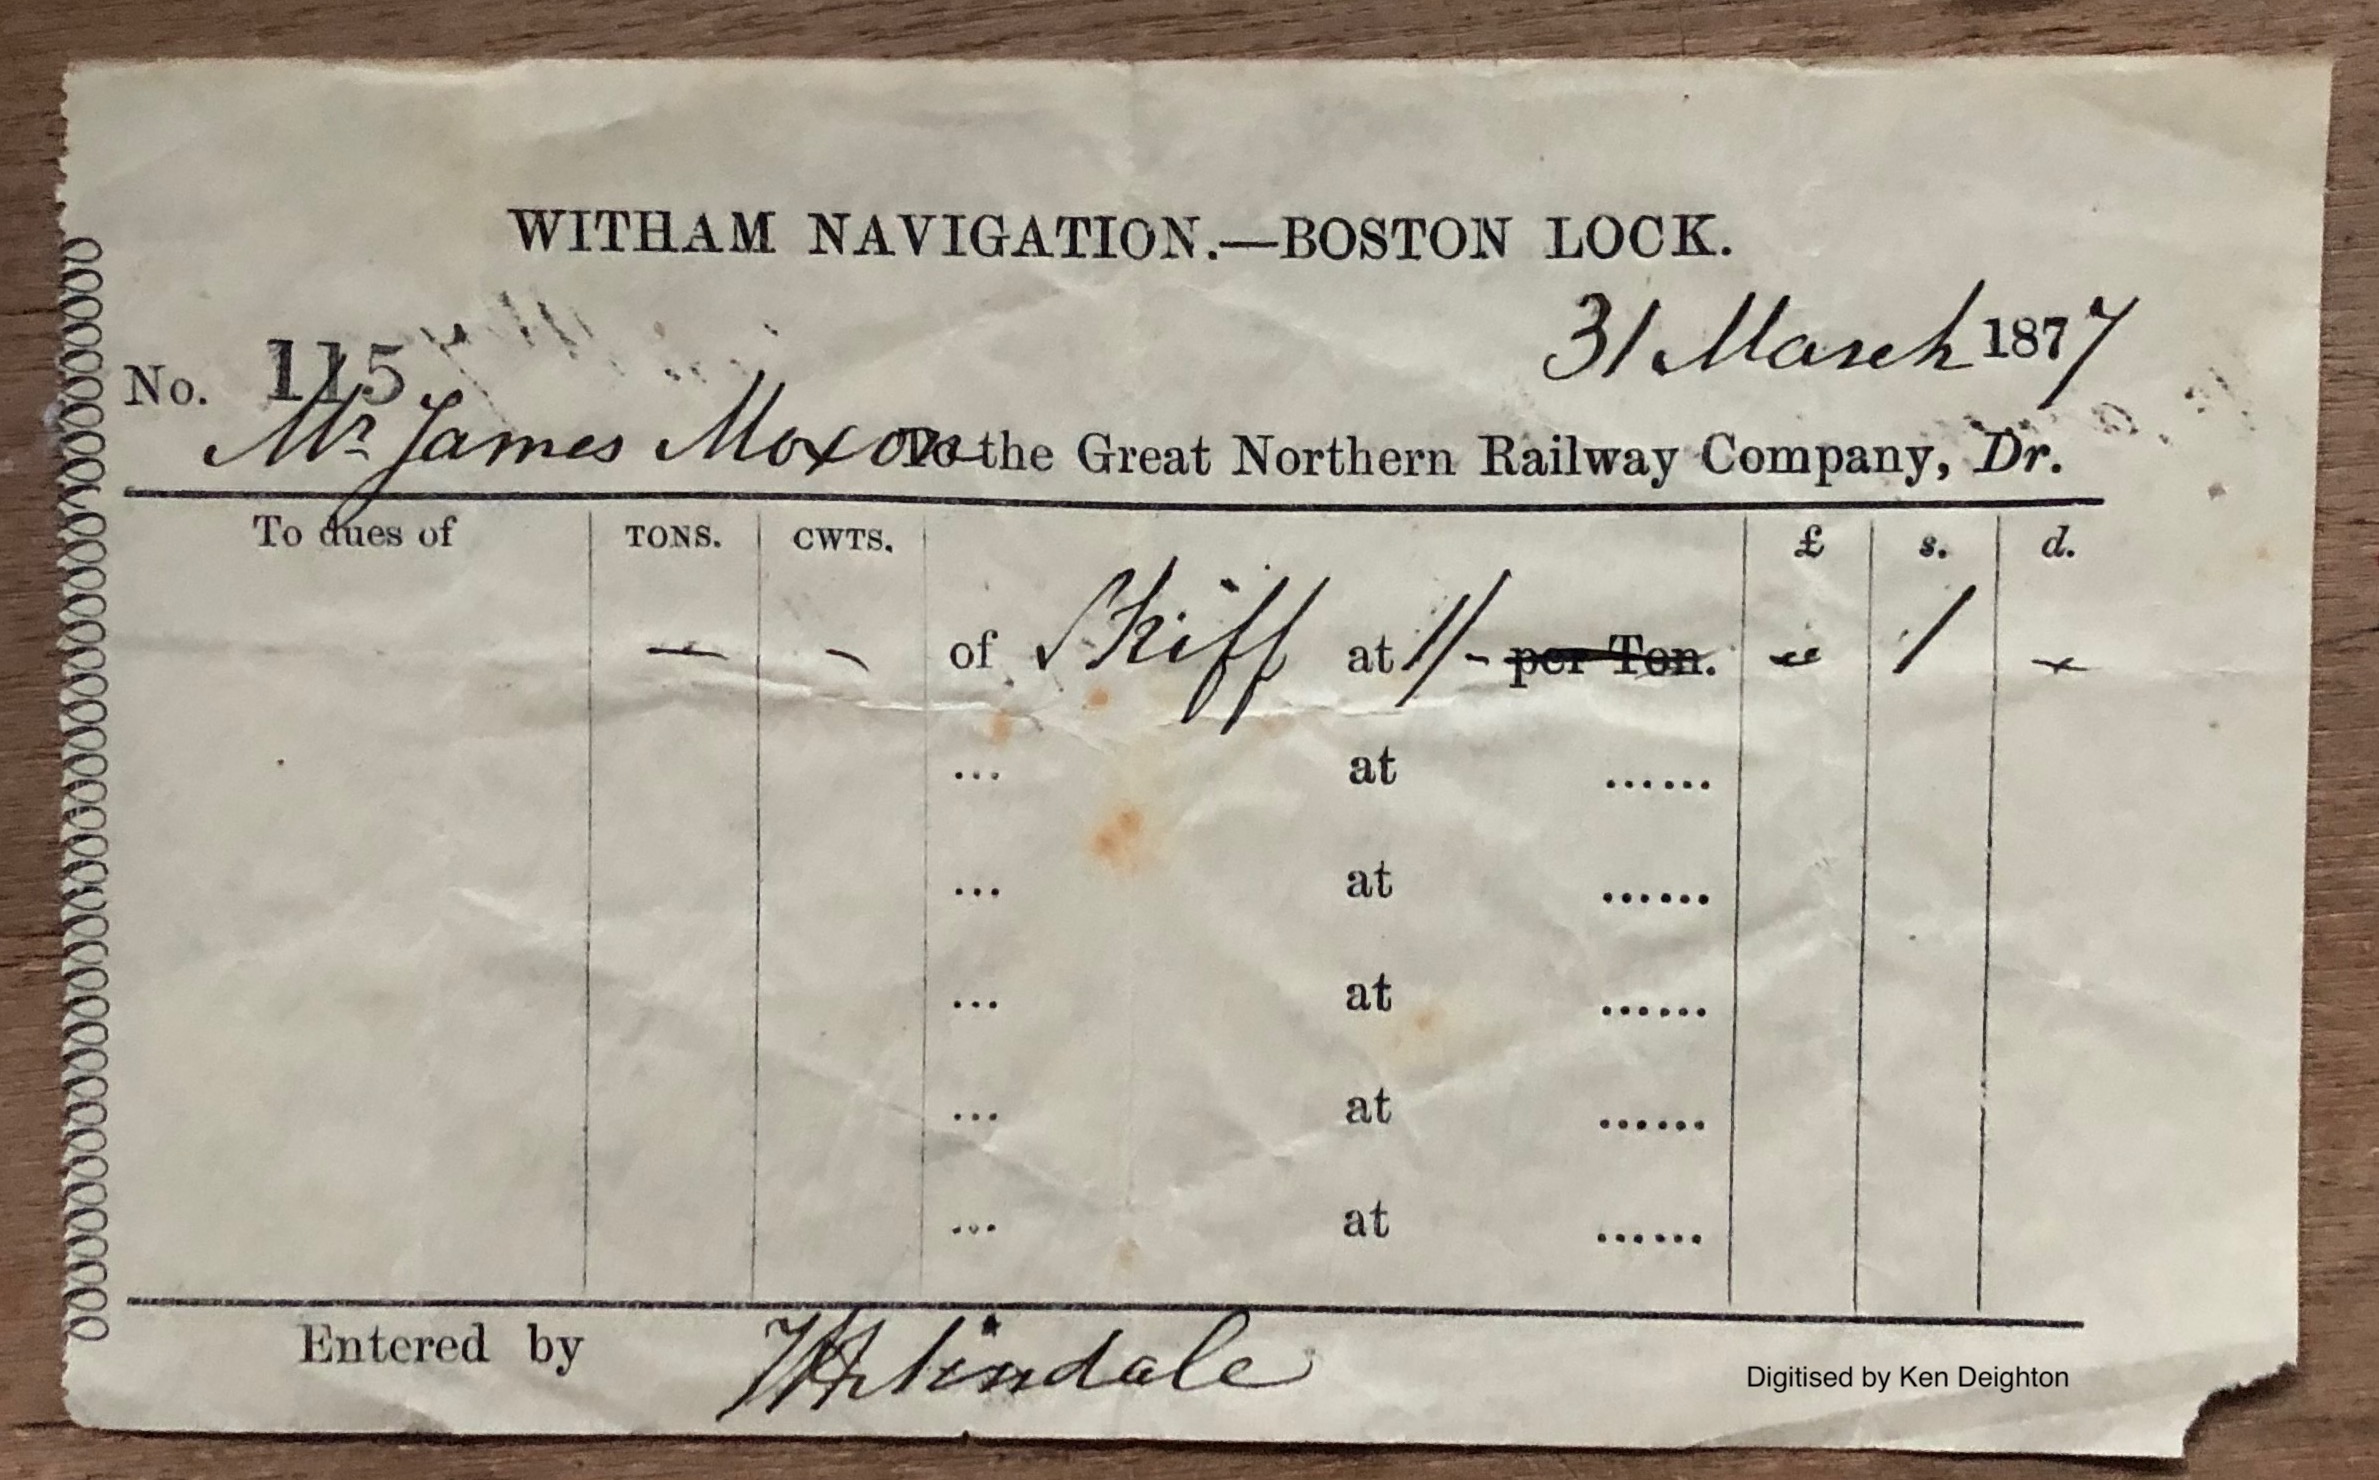 WITHAM NAVIGATION.—BOSTON LOCK.
31 March 1877
No. 115
Mr James Moxon To the Great Northern Railway Company, Dr.
To dues of TONS. CWTS. £ s. d.
— — of Skiff at 1/- per Ton. — 1 —
... at ......
... at ......
... at ......
... at ......
... at ......
Entered by Lindale
Digitised by Ken Deighton